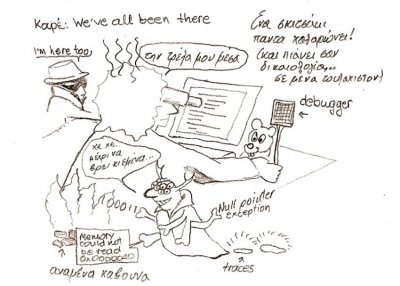 Καρέ: We've all been there
Ένα σκιτσάκι
πάντα χαλαρώνει!
(και πιάνει σαν
δικαιολογία...
σε μένα τουλάχιστον!)
I'm here too
την τρέλα μου μέσα
debugger
χε χε
μέχρι να
βρει κι εμένα...
Ωοοο!!
Null pointer
exception
Memory
could not
be read
αναμένα κάβουνα
traces